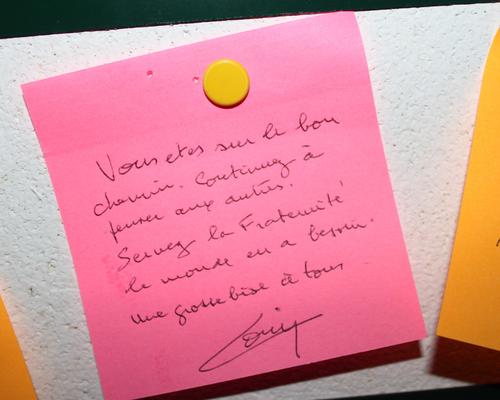 Vous etes sur le bon
chemin. Continuez à
penser aux autres.
Servez la Fraternité
le monde en a besoin.
une grosse bise à tous